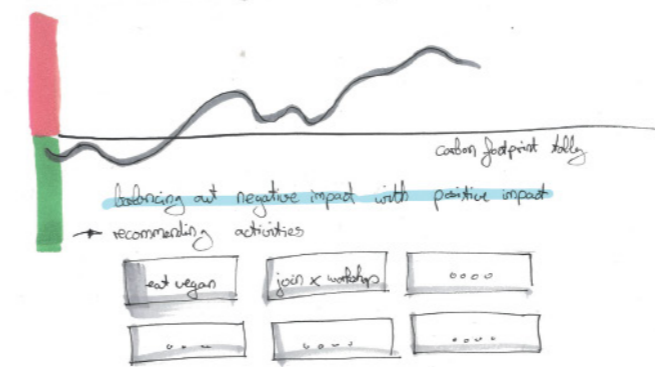 carbon footprint tally
balancing out negative impact with positive impact
→ recommending activities
eat vegan
join x workshop